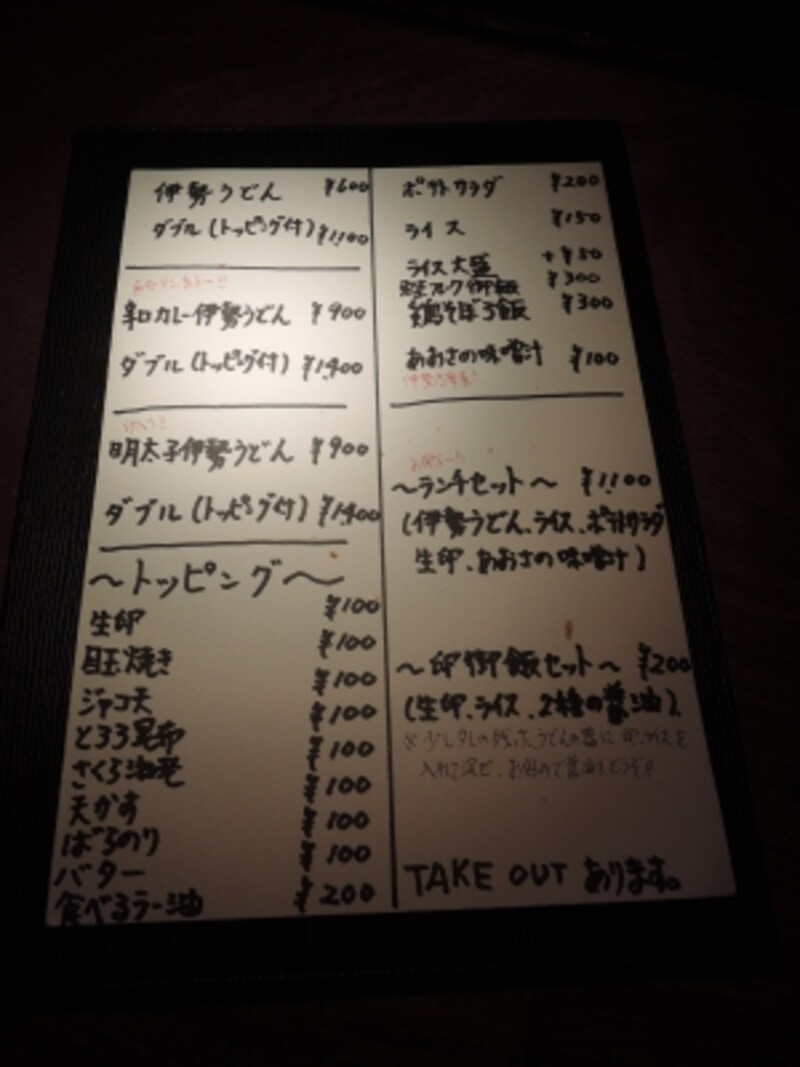 伊勢うどん ¥600
ダブル(トッピング付) ¥1,100
辛口カレー伊勢うどん ¥900
ダブル(トッピング付) ¥1,400
明太子伊勢うどん ¥900
ダブル(トッピング付) ¥1,400
～トッピング～
生卵 ¥100
目玉焼き ¥100
ジャコ天 ¥100
とろろ昆布 ¥100
さくら油売 ¥100
天かす ¥100
ばらのり ¥100
バター ¥100
食べるラー油 ¥200
ポテトサラダ ¥200
ライス ¥150
ライス大盛 +¥50
御飯 ¥300
鶏そぼろ飯 ¥300
あおさの味噌汁 ¥100
～ランチセット～ ¥1,100
(伊勢うどん、ライス、ポテトサラダ
生卵、あおさの味噌汁)
～卵御飯セット～ ¥200
(生卵、ライス、2種の醤油)
TAKE OUT あります。